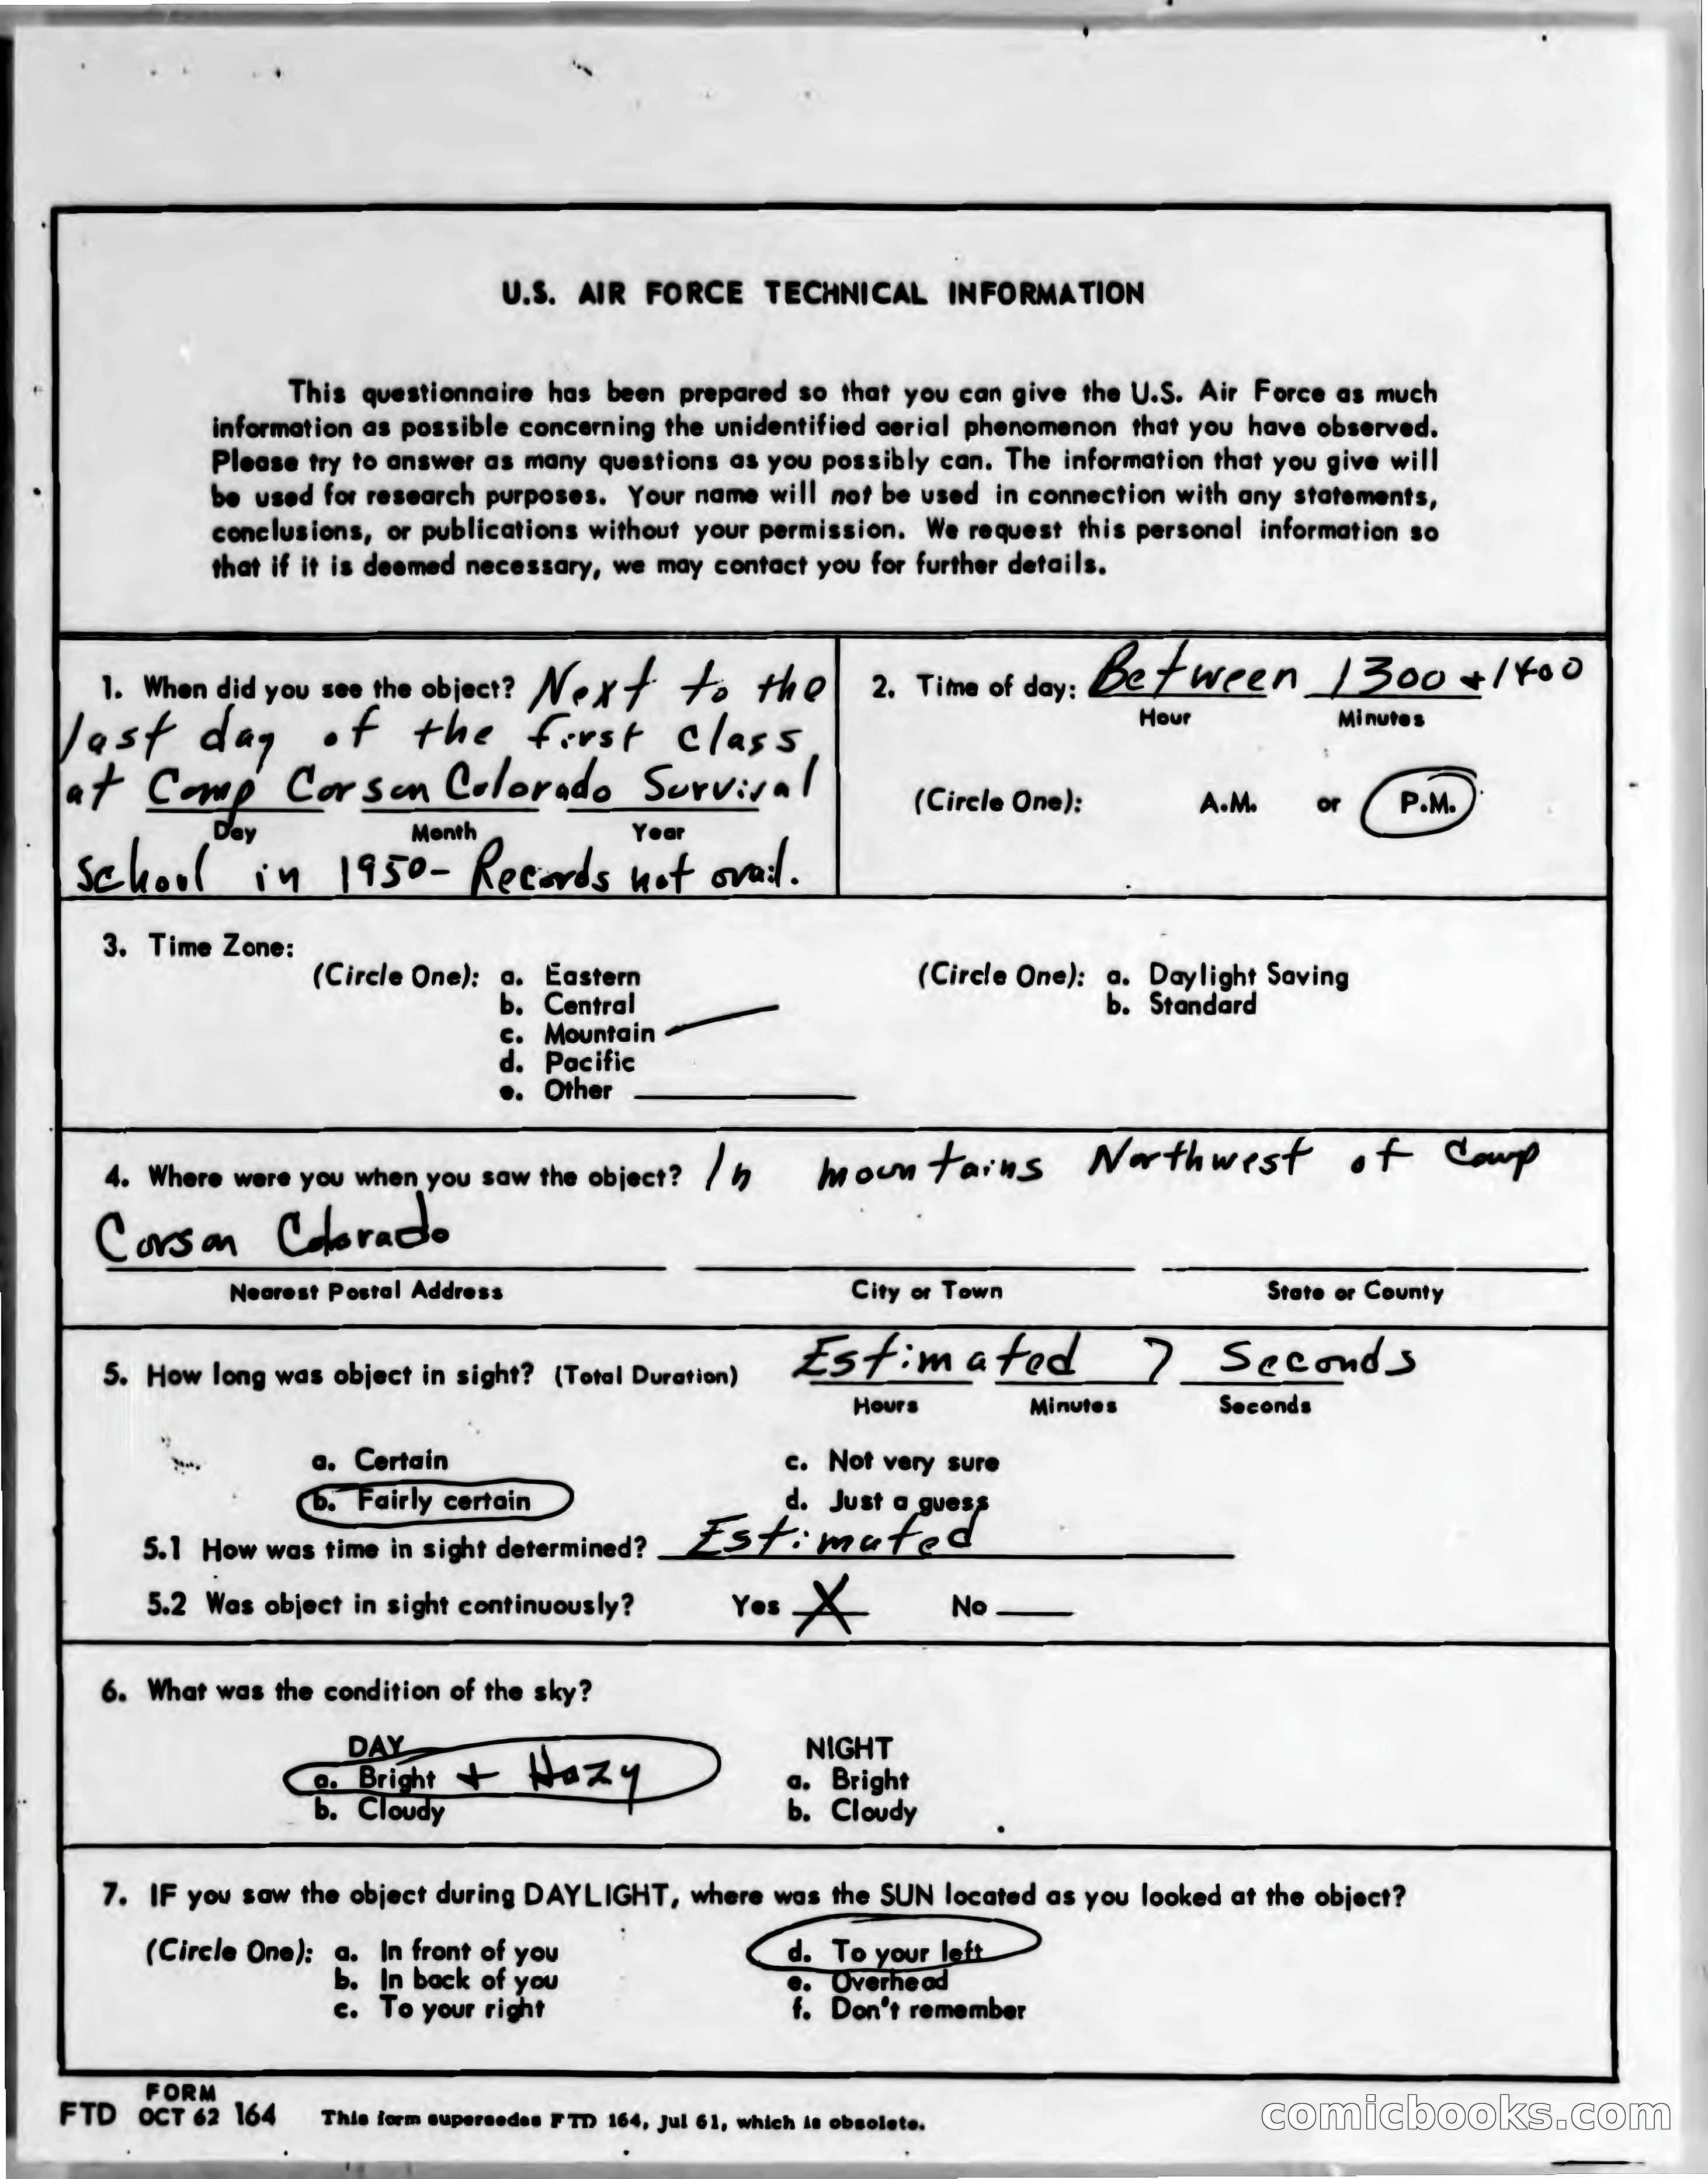 U.S. AIR FORCE TECHNICAL INFORMATION
This questionnaire has been prepared so that you can give the U.S. Air Force as much
information as possible concerning the unidentified aerial phenomenon that you have observed.
Please try to answer as many questions as you possibly can. The information that you give will
be used for research purposes. Your name will not be used in connection with any statements,
conclusions, or publications without your permission. We request this personal information so
that if it is deemed necessary, we may contact you for further details.
1. When did you see the object? Next to the
last day of the first class
at Camp Carson Colorado Survival
Day Month Year
School in 1950- Records not avail.
2. Time of day: Between 1300 + 1400
Hour Minutes
(Circle One): A.M. or P.M.
3. Time Zone:
(Circle One): a. Eastern
b. Central
c. Mountain
d. Pacific
e. Other
(Circle One): a. Daylight Saving
b. Standard
4. Where were you when you saw the object? In mountains Northwest of Camp
Carson Colorado
Nearest Postal Address City or Town State or County
5. How long was object in sight? (Total Duration) Estimated 7 Seconds
Hours Minutes Seconds
a. Certain c. Not very sure
b. Fairly certain d. Just a guess
5.1 How was time in sight determined? Estimated
5.2 Was object in sight continuously? Yes X No
6. What was the condition of the sky?
DAY NIGHT
a. Bright + Hazy a. Bright
b. Cloudy b. Cloudy
7. IF you saw the object during DAYLIGHT, where was the SUN located as you looked at the object?
(Circle One): a. In front of you d. To your left
b. In back of you e. Overhead
c. To your right f. Don't remember
FORM
FTD OCT 62 164 This form supersedes FTD 164, Jul 61, which is obsolete.
comicbooks.com